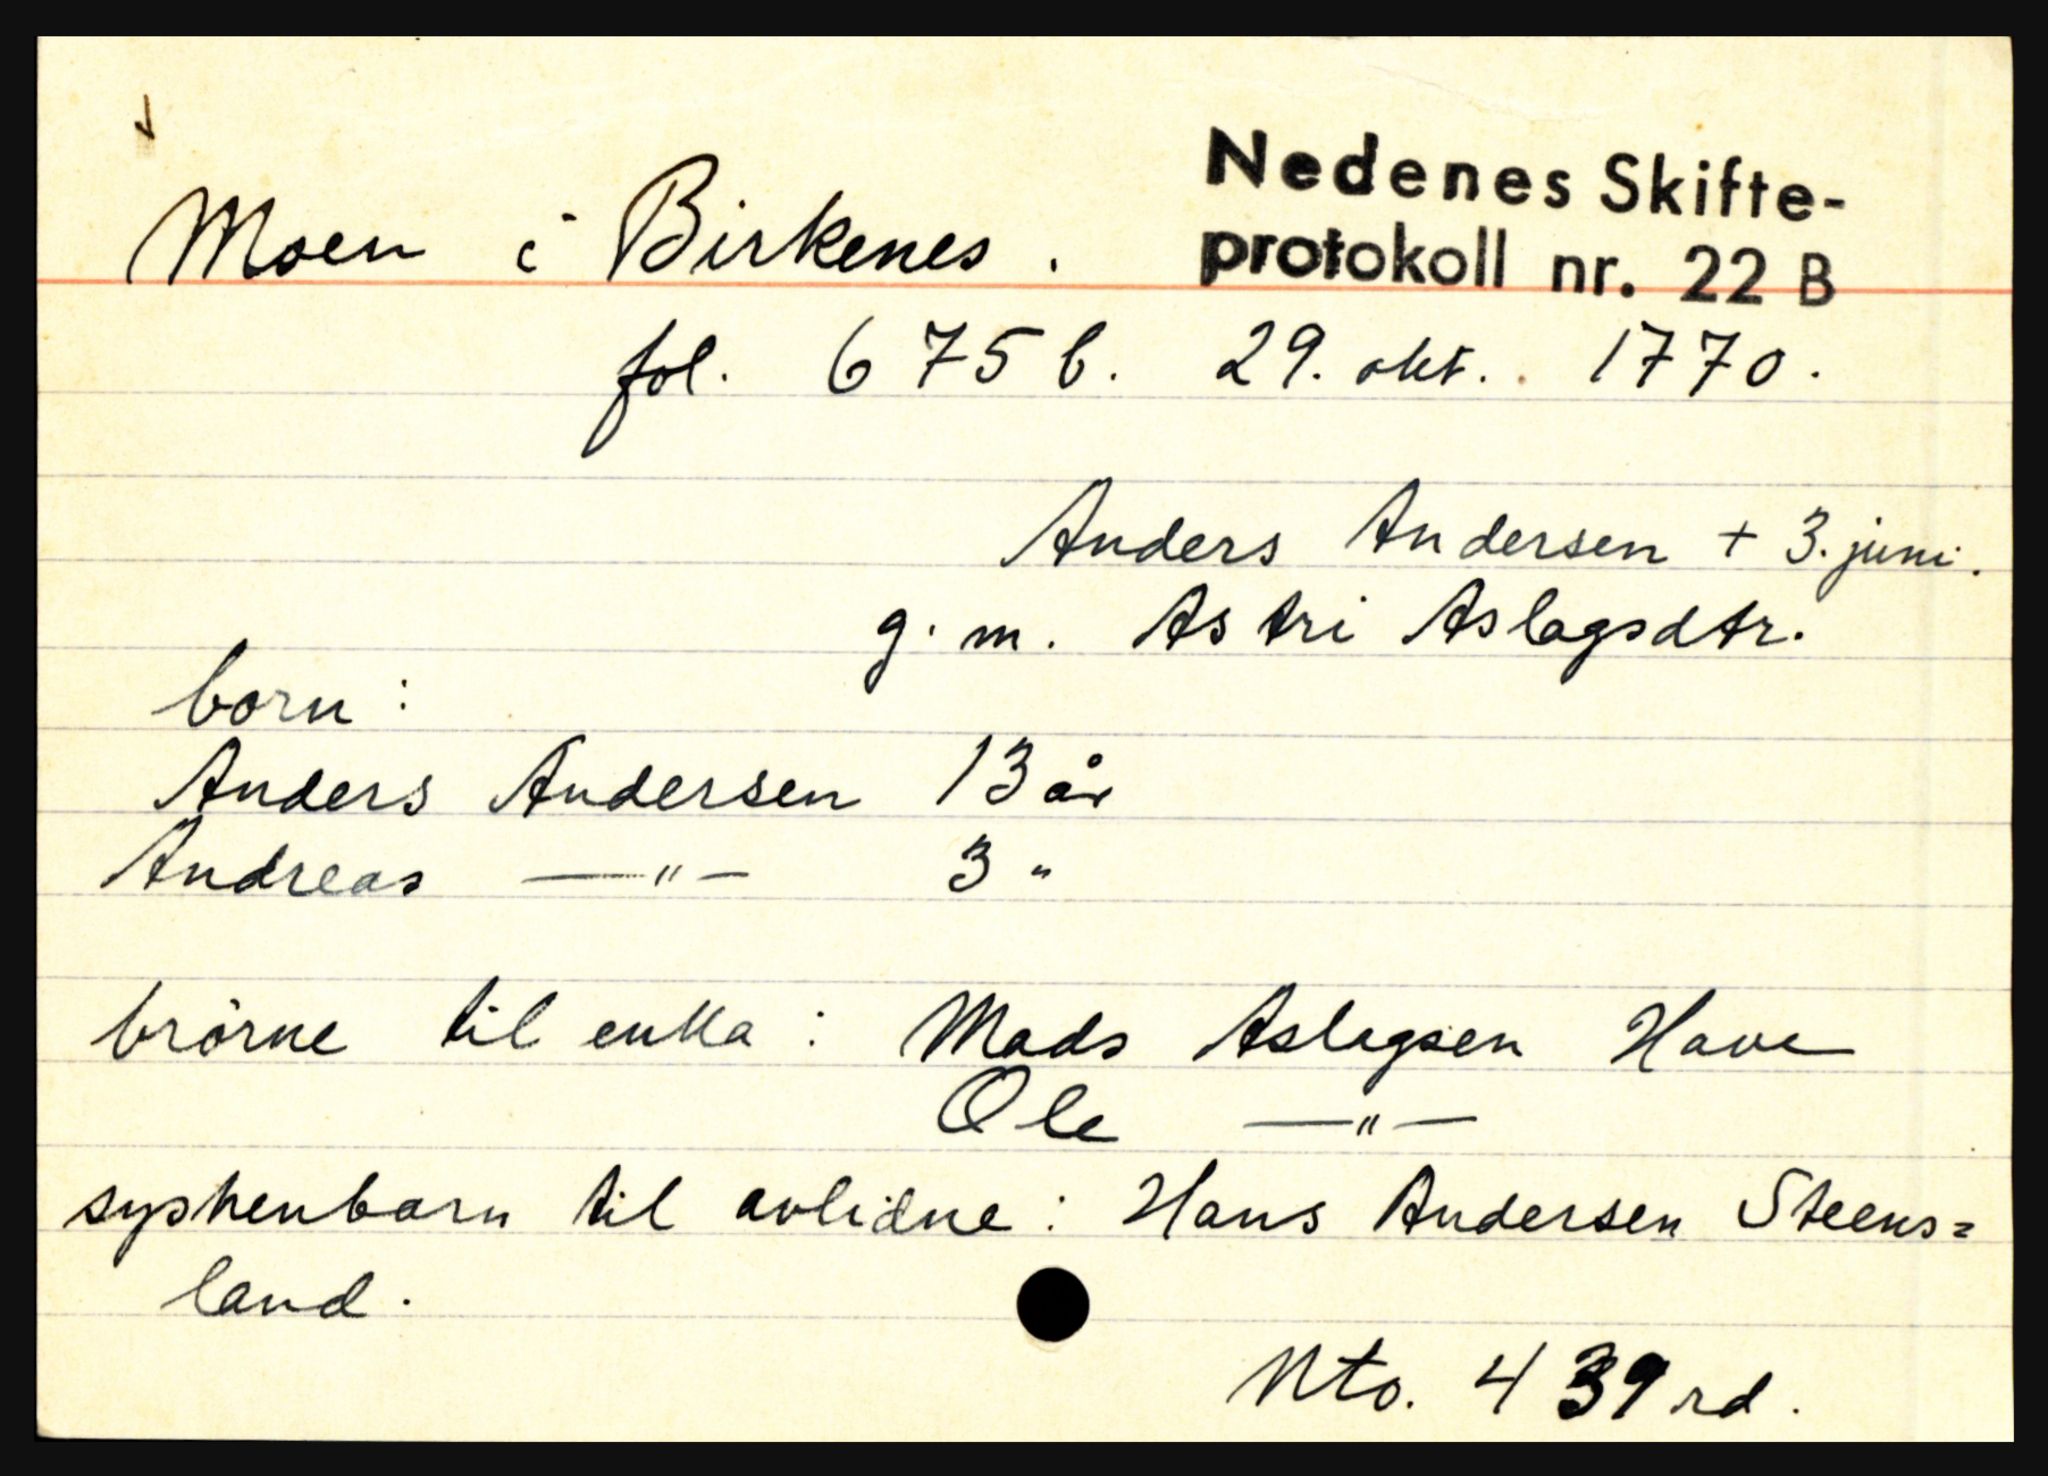 Moen i Birkenes.
Nedenes Skifte-
protokoll nr. 22 B
fol. 675 b. 29. okt. 1770.
Anders Andersen + 3. juni.
g. m. Astri Aslagsdtr.
born:
Anders Andersen 13 år
Andreas —"— 3 "
brörne til enka: Mads Aslagsen Have
Ole —"—
syskenbarn til avlidne: Hans Andersen Steens=
land.
Nto. 439 rd.